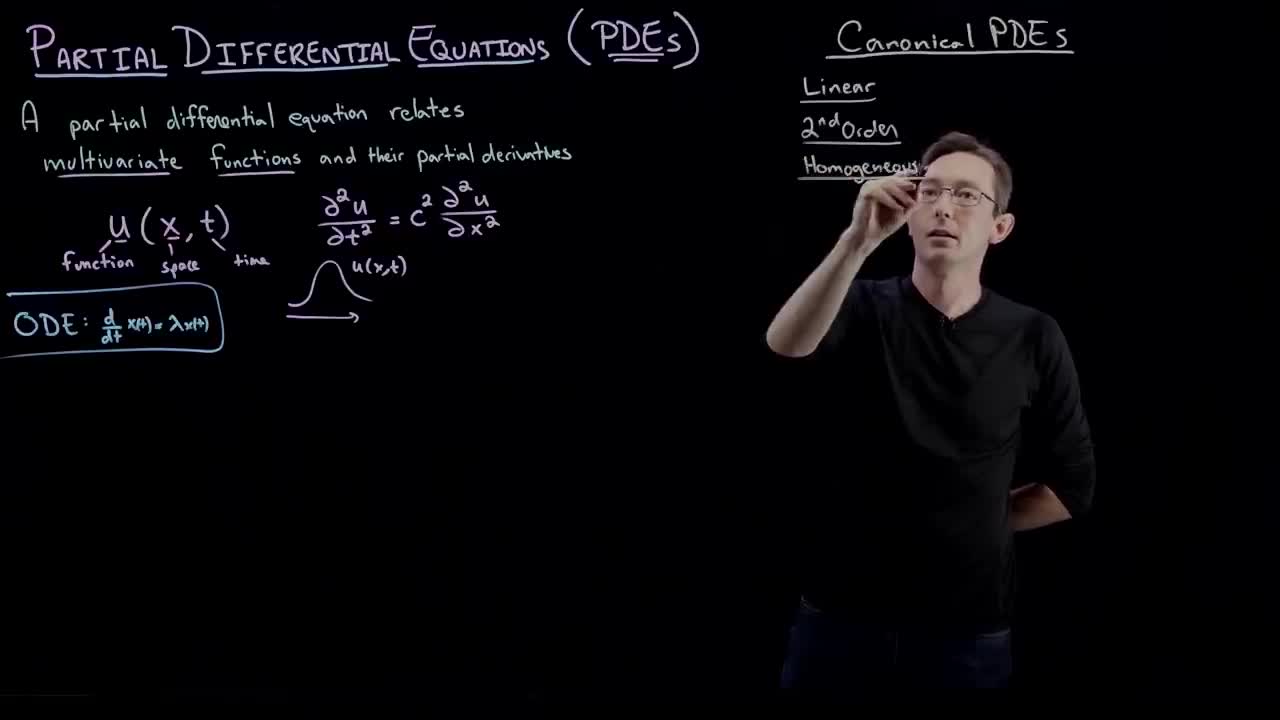 PARTIAL DIFFERENTIAL EQUATIONS (PDEs)
A partial differential equation relates
multivariate functions and their partial derivatives
u(x,t)
function space time
∂²u/∂t² = c² ∂²u/∂x²
u(x,t)
ODE: d/dt x(t) = λx(t)
Canonical PDEs
Linear
2nd Order
Homogeneous